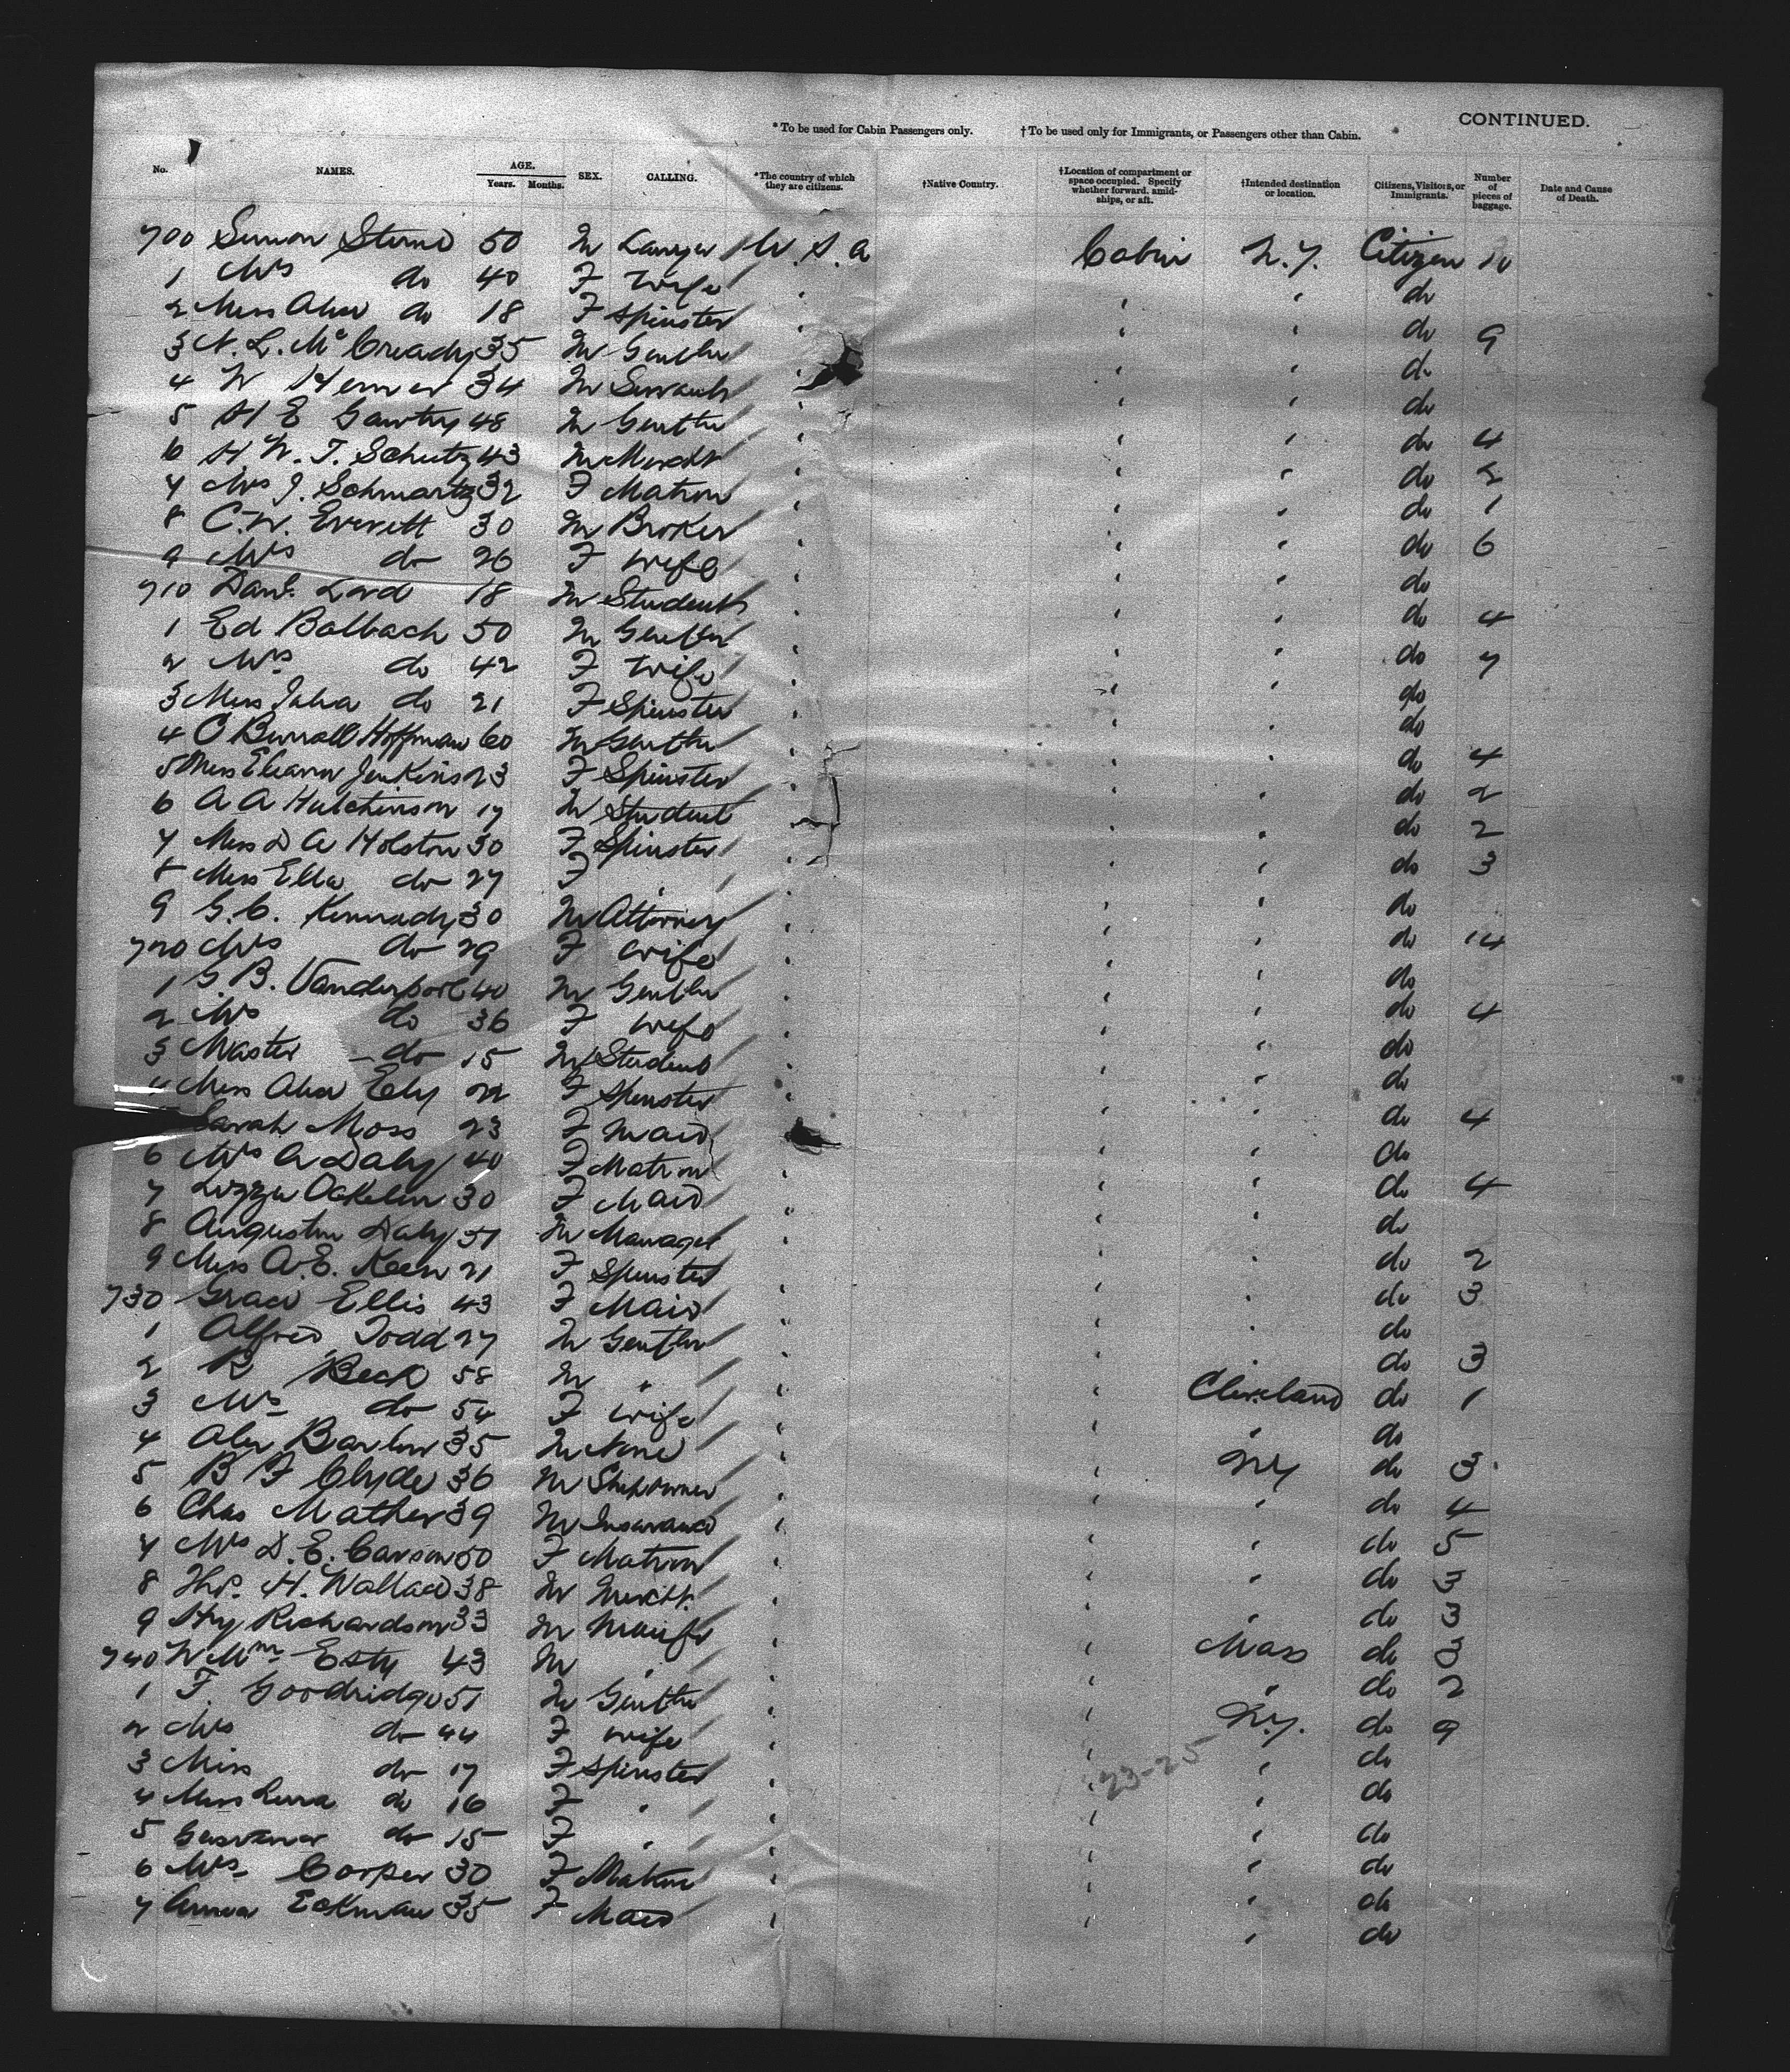 CONTINUED.
* To be used for Cabin Passengers only. † To be used only for Immigrants, or Passengers other than Cabin.
No. NAMES. AGE. Years. Months. SEX. CALLING. *The country of which they are citizens. †Native Country. †Location of compartment or space occupied. Specify whether forward, amidships, or aft. †Intended destination or location. Citizens, Visitors, or Immigrants. Number of pieces of baggage. Date and Cause of Death.
700 Simon Sterne 50 M Lawyer U.S.A Cabin N.Y. Citizen 10
1 Mrs do 40 F Wife do
2 Miss Alice do 18 F Spinster do
3 N. L. McCready 35 M Gentln do 9
4 W 34 M Servant do
5 H E Gawtry 48 M Gentln do 4
6 H W. T. Schutz 43 M Mercht do 2
7 Mrs J. Schwartz 32 F Matron do 1
8 C. W. Everett 30 M Broker do 6
9 Mrs do 26 F Wife do
710 Danl. Lord 18 M Student do 4
1 Ed Balbach 50 M Gentln do 7
2 Mrs do 42 F Wife do
3 Miss Julia do 21 F Spinster do
4 C Burrall Hoffman 60 M Gentln do 4
5 Miss Eleanor Jenkins 23 F Spinster do 2
6 A A Hutchinson 17 M Student do 2
7 Miss D A Holston 30 F Spinster do 3
8 Miss Ella do 27 F " do
9 G. C. Kennady 30 M Attorney do 14
720 Mrs do 29 F Wife do
1 G. B. Vanderpoel 40 M Gentln do 4
2 Mrs do 36 F Wife do
3 Master do 15 M Student do
4 Miss Alice Ely 22 F Spinster do 4
Sarah Moss 23 F Maid do
6 Mrs A Daly 40 F Matron do 4
7 Lizzie 30 F Maid do
8 Augustin Daly 51 M Manager do 2
9 Miss A. E. Keen 21 F Spinster do 3
730 Grace Ellis 43 F Maid do
1 Alfred Todd 27 M Gentln do 3
2 R Beck 58 M " Cleveland do 1
3 Mrs do 54 F Wife " do
4 Alex Barlow 35 M None N Y do 3
5 B F Clyde 36 M Shipowner " do 4
6 Chas Mather 39 M Insurance " do 5
7 Mrs D. E. Carson 50 F Matron " do 3
8 Thos. H. Wallace 38 M Mercht. " do 3
9 Hy Richardson 33 M Manufr Mass do 3
740 Wm Esty 43 M " " do 2
1 F. Goodridge 51 M Gentln N.Y. do 9
2 Mrs do 44 F Wife " do
3 Miss do 17 F Spinster " do
4 Miss do 16 F " " do
5 do 15 F " " do
6 Mrs Cooper 30 F Matron " do
7 Anna Eckman 35 F Maid " do
23-25